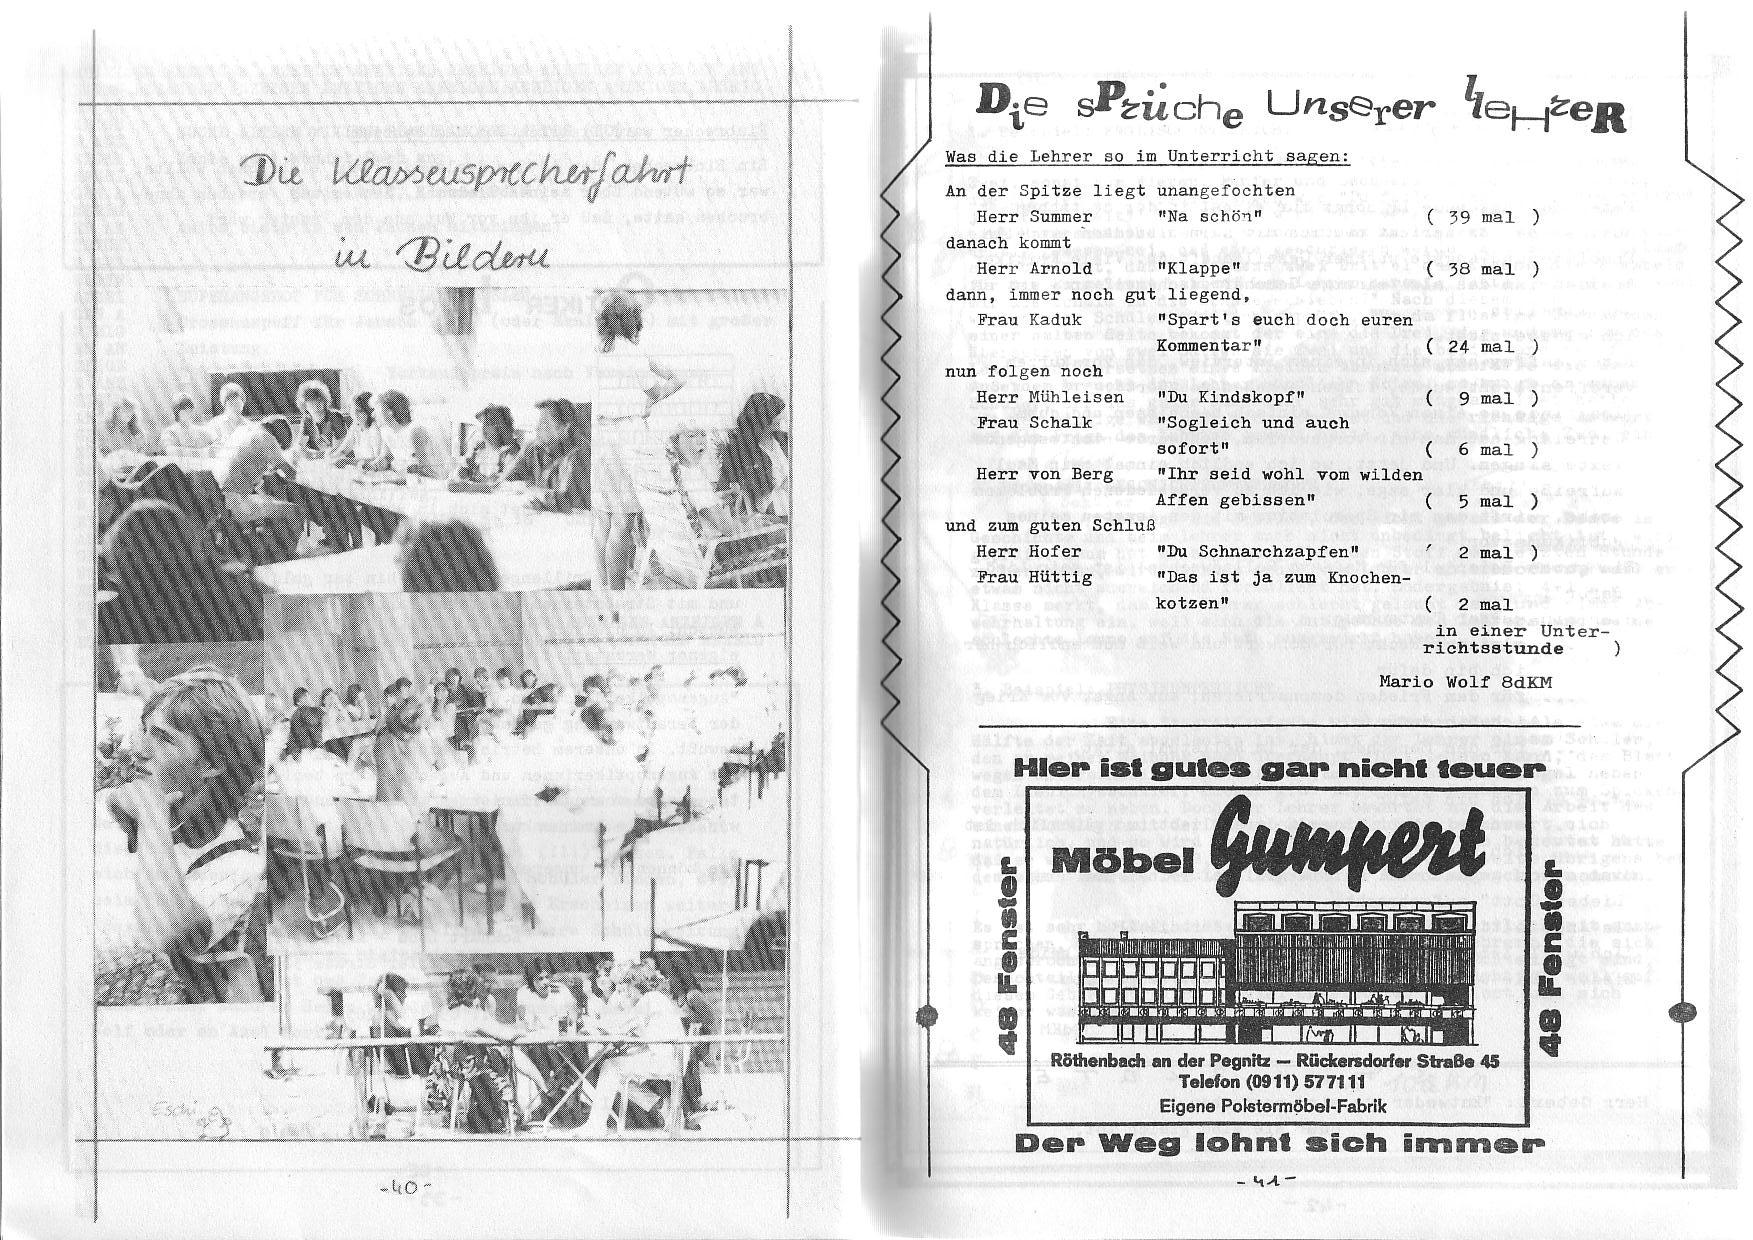 Die Klassensprecherfahrt
in Bildern
Eschi
-40-
Die sPrüche Unserer LehreR
Was die Lehrer so im Unterricht sagen:
An der Spitze liegt unangefochten
Herr Summer "Na schön" ( 39 mal )
danach kommt
Herr Arnold "Klappe" ( 38 mal )
dann, immer noch gut liegend,
Frau Kaduk "Spart's euch doch euren
Kommentar" ( 24 mal )
nun folgen noch
Herr Mühleisen "Du Kindskopf" ( 9 mal )
Frau Schalk "Sogleich und auch
sofort" ( 6 mal )
Herr von Berg "Ihr seid wohl vom wilden
Affen gebissen" ( 5 mal )
und zum guten Schluß
Herr Hofer "Du Schnarchzapfen" ( 2 mal )
Frau Hüttig "Das ist ja zum Knochen-
kotzen" ( 2 mal
in einer Unter-
richtsstunde )
Mario Wolf 8dKM
Hier ist gutes gar nicht teuer
Möbel Gumpert
48 Fenster
48 Fenster
Röthenbach an der Pegnitz — Rückersdorfer Straße 45
Telefon (0911) 577111
Eigene Polstermöbel-Fabrik
Der Weg lohnt sich immer
-41-